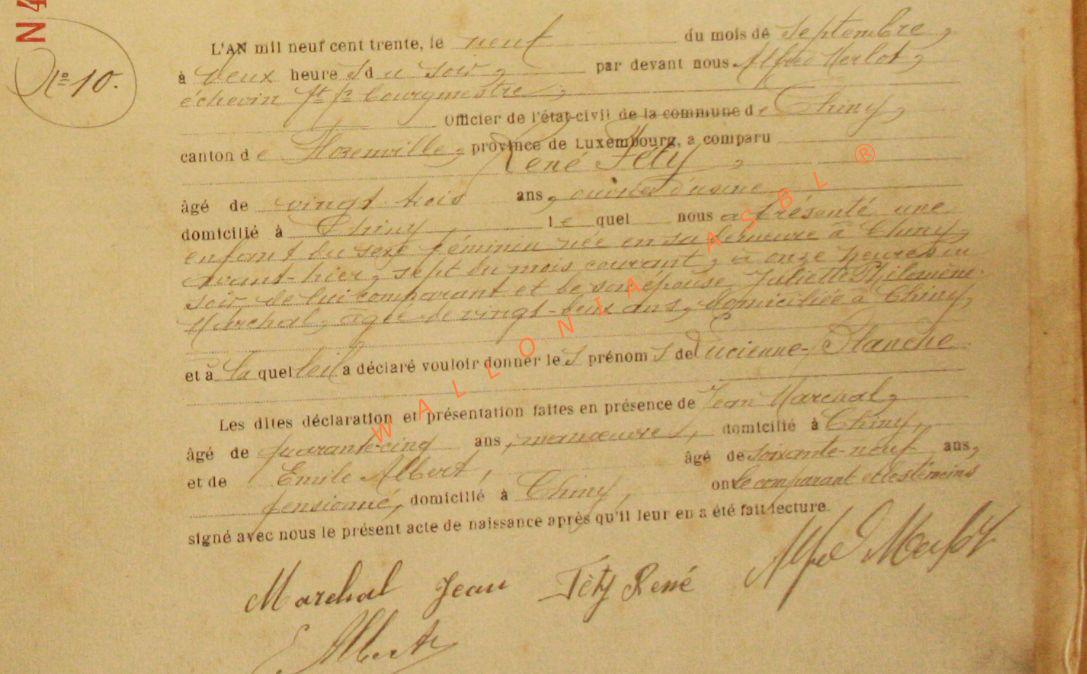 N4
N° 10.
L'AN mil neuf cent trente, le neuf du mois de septembre,
à deux heures du soir, par devant nous Alfred Merlot,
échevin ft fs bourgmestre,
Officier de l'état-civil de la commune de Chiny,
canton de Florenville, province de Luxembourg, a comparu
René Féty,
âgé de vingt trois ans, ouvrier d'usine
domicilié à Chiny lequel nous a présenté une
enfant du sexe féminin née en sa demeure à Chiny,
avant-hier, sept du mois courant, à onze heures du
soir de lui comparant et de son épouse Juliette Philomène
Marchal, agée de vingt-deux ans, domiciliée à Chiny,
et à laquelle il a déclaré vouloir donner les prénoms de Lucienne-Blanche
Les dites déclaration et présentation faites en présence de Jean Marchal,
âgé de quarante-cinq ans, manœuvre, domicilié à Chiny,
et de Emile Albert, âgé de soixante-neuf ans,
pensionné, domicilié à Chiny, ont le comparant et les témoins
signé avec nous le présent acte de naissance après qu'il leur en a été fait lecture.
Marchal Jean Féty René Alfred Merlot
E Albert
WALLONIA ASBL ®